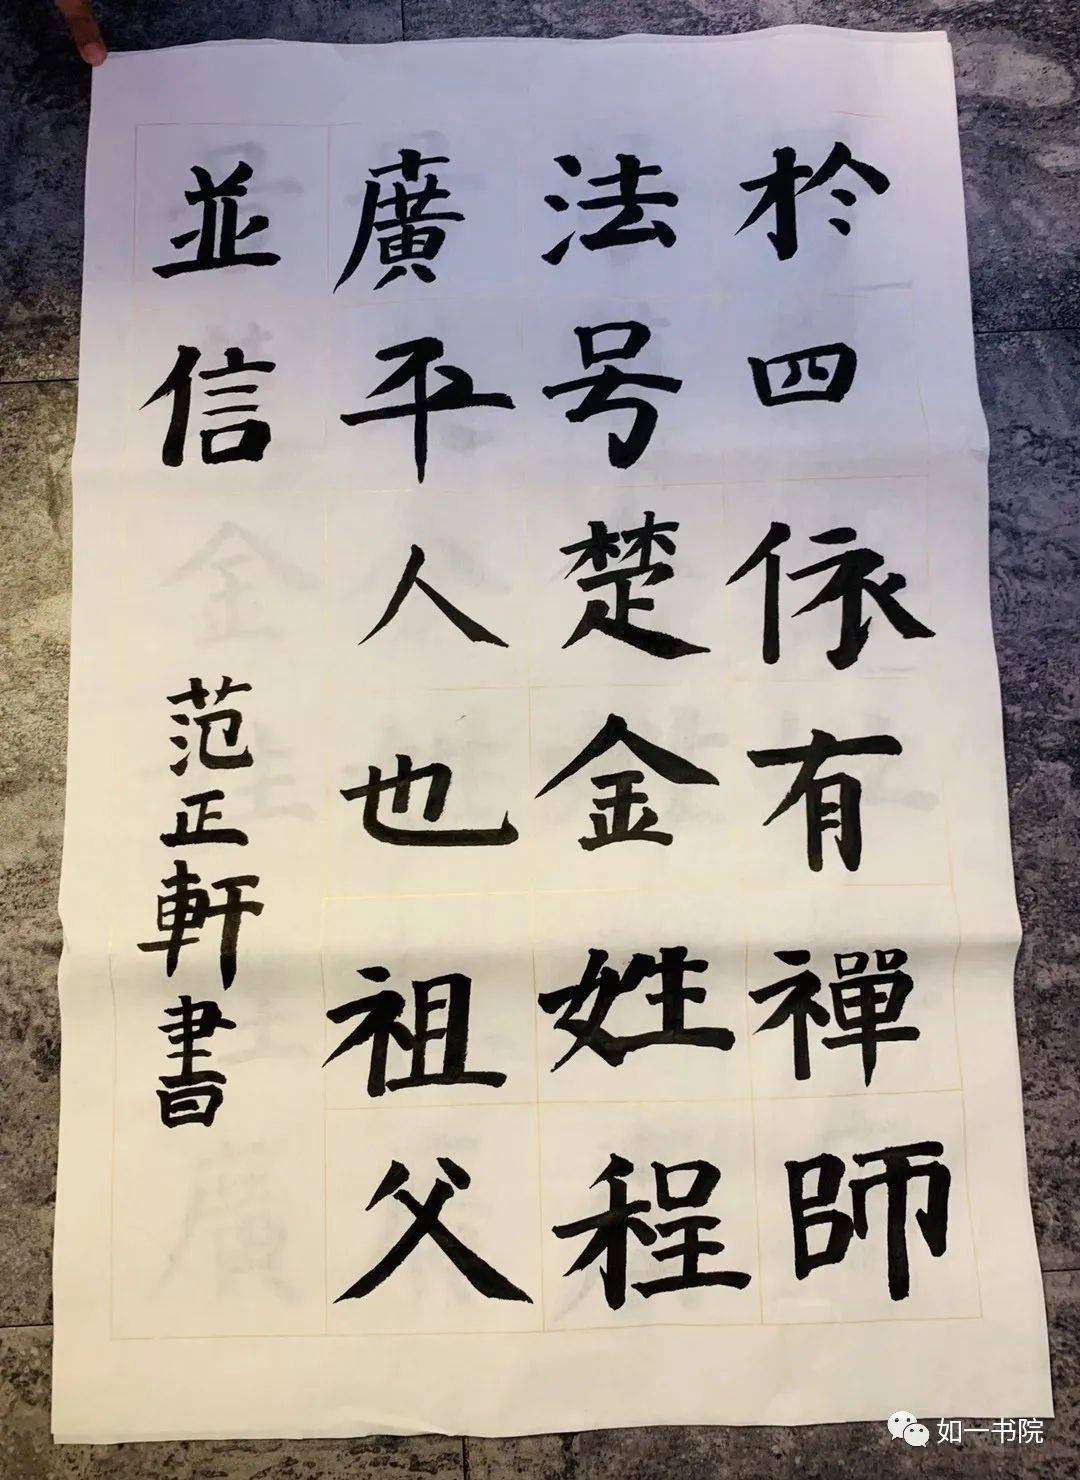 於四依有禪師
法号楚金姓程
廣平人也祖父
並信
范正軒書
如一书院